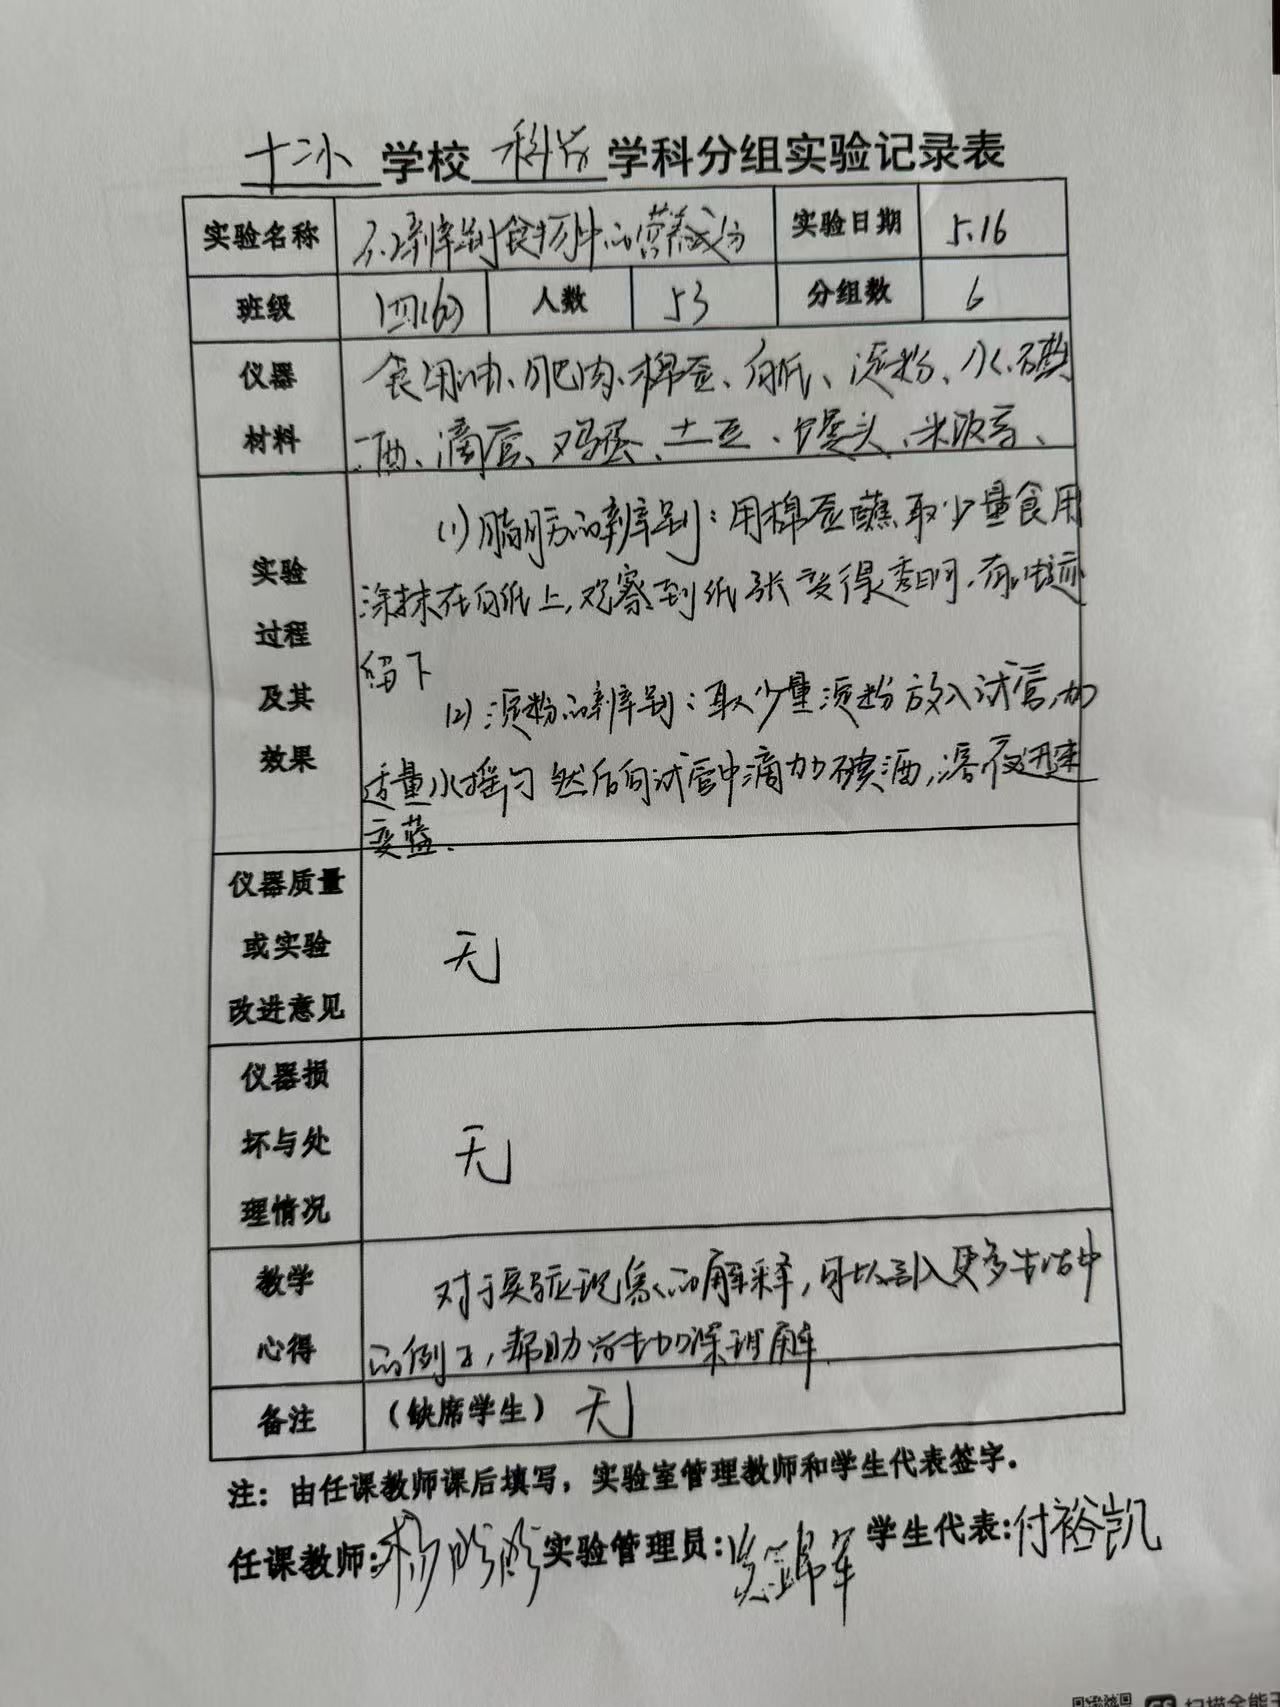 十二小 学校 科学 学科分组实验记录表
实验名称 2.2辨别食物中的营养成分 实验日期 5.16
班级 四(6) 人数 53 分组数 6
仪器材料 食用油、肥肉、棉签、白纸、淀粉、水、碘
酒、滴管、鸡蛋、土豆、馒头、米饭等、
实验过程及其效果
(1)脂肪的辨别:用棉签蘸取少量食用
涂抹在白纸上,观察到纸张变得透明,有油迹
留下
(2)淀粉的辨别:取少量淀粉放入试管,加
适量水摇匀然后向试管中滴加碘酒,溶液迅速
变蓝.
仪器质量或实验改进意见 无
仪器损坏与处理情况 无
教学心得 对于实验现象的解释,可以引入更多生活中
的例子,帮助学生加深理解.
备注 (缺席学生) 无
注:由任课教师课后填写,实验室管理教师和学生代表签字.
任课教师:杨 实验管理员: 学生代表:付裕凯